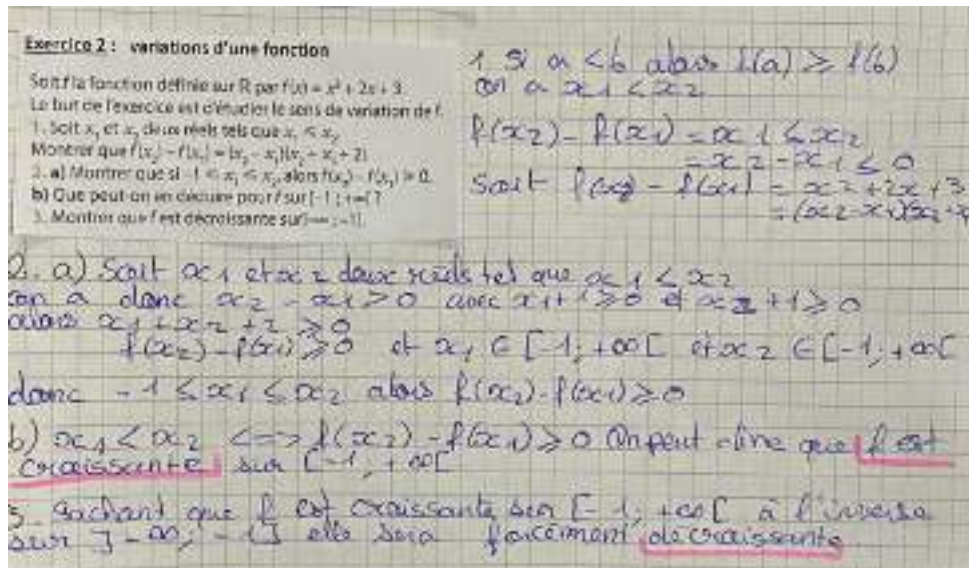 Exercice 2 : variations d'une fonction
Soit f la fonction définie sur R par f(x) = x² + 2x + 3.
Le but de l'exercice est d'étudier le sens de variation de f.
1. Soit x₁ et x₂ deux réels tels que x₁ ⩽ x₂.
Montrer que f(x₂) – f(x₁) = (x₂ – x₁)(x₂ + x₁ + 2)
2. a) Montrer que si –1 ⩽ x₁ ⩽ x₂, alors f(x₂) – f(x₁) ⩾ 0.
b) Que peut-on en déduire pour f sur [–1 ; +∞[ ?
3. Montrer que f est décroissante sur ]–∞ ; –1].
1 Si a < b alors f(a) ⩾ f(b)
on a x1 < x2
f(x2) – f(x1) = x1 ⩽ x2
= x2 – x1 ⩽ 0
Soit f(x2) – f(x1) = x2 + 2x + 3
= (x2 – x1)(x2 +
2. a) Soit x1 et x2 deux réels tel que x1 ⩽ x2
on a donc x2 – x1 > 0 avec x1 + 1 ⩾ 0 et x2 + 1 ⩾ 0
alors x1 + x2 + 2 ⩾ 0
f(x2) – f(x1) ⩾ 0 et x1 ∈ [–1; +∞[ et x2 ∈ [–1; +∞[
donc –1 ⩽ x1 ⩽ x2 alors f(x2) – f(x1) ⩾ 0
b) x1 < x2 <=> f(x2) – f(x1) ⩾ 0 On peut dire que f est
croissante sur [–1, +∞[
3. Sachant que f est croissante sur [–1; +∞[ à l'inverse
sur ]–∞; –1] elle sera forcément décroissante